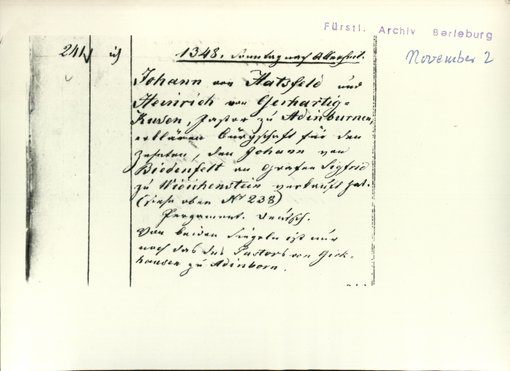 Fürstl. Archiv Berleburg
November 2
241 1348. Sonntag nach Allerheil.
Johann von Hatsfeld und
Heinrich von Gerhartig-
husen, Pastor zu Adinburnen,
erklären Bürgschaft für den
Zehnten, den Johann von
Biedenfelt an Grafen Sigfrid
zu Witchenstein verkauft hat.
(siehe oben No 238)
Pergament. Deutsch.
Von beiden Siegeln ist nur
noch das des Pastors von
hausen zu Adinborn.